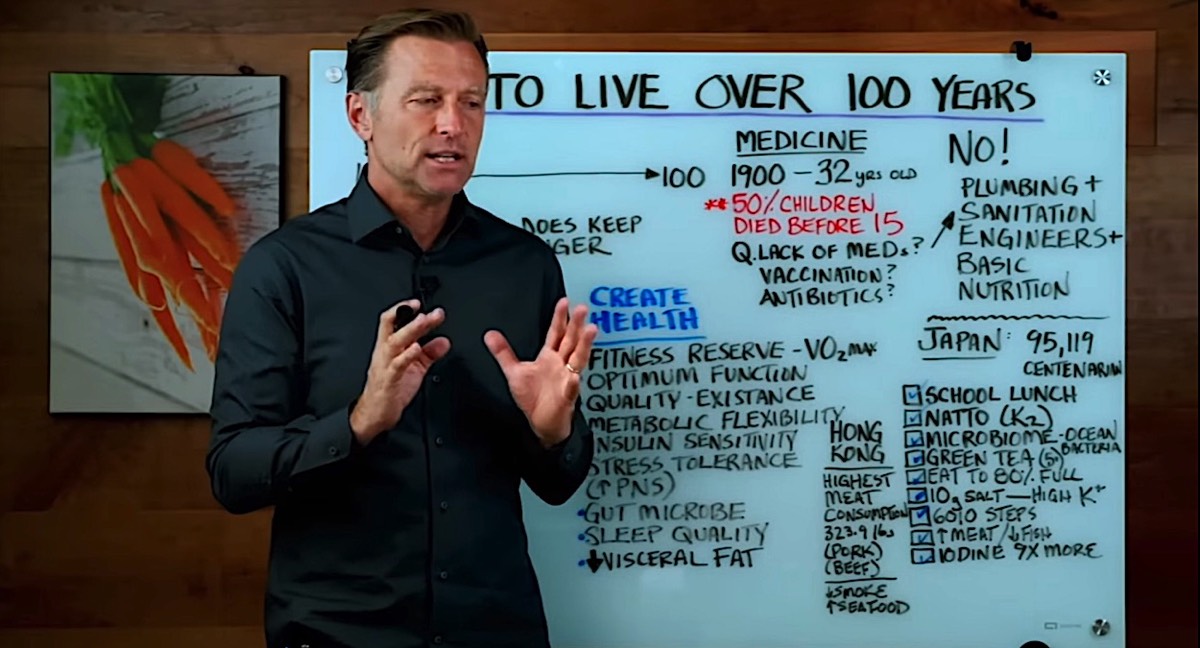 TO LIVE OVER 100 YEARS
100
DOES KEEP
MEDICINE
1900 - 32 YRS OLD
** 50% CHILDREN
DIED BEFORE 15
Q. LACK OF MEDs?
VACCINATION?
ANTIBIOTICS?
NO!
PLUMBING +
SANITATION
ENGINEERS+
BASIC
NUTRITION
CREATE
HEALTH
FITNESS RESERVE - VO₂ MAX
OPTIMUM FUNCTION
QUALITY-EXISTANCE
METABOLIC FLEXIBILITY
INSULIN SENSITIVITY
STRESS TOLERANCE
(↑PNS)
•GUT MICROBE
•SLEEP QUALITY
•↓VISCERAL FAT
HONG
KONG
HIGHEST
MEAT
CONSUMPTION
323.9 lbs
(PORK)
(BEEF)
↓SMOKE
↑SEAFOOD
JAPAN: 95,119
CENTENARIAN
☑ SCHOOL LUNCH
☑ NATTO (K₂)
☑ MICROBIOME-OCEAN BACTERIA
☑ GREEN TEA (5)
☑ EAT TO 80% FULL
☑ 10g SALT — HIGH K⁺
☑ 6010 STEPS
☑ ↑MEAT/↓FISH
☑ IODINE 9X MORE